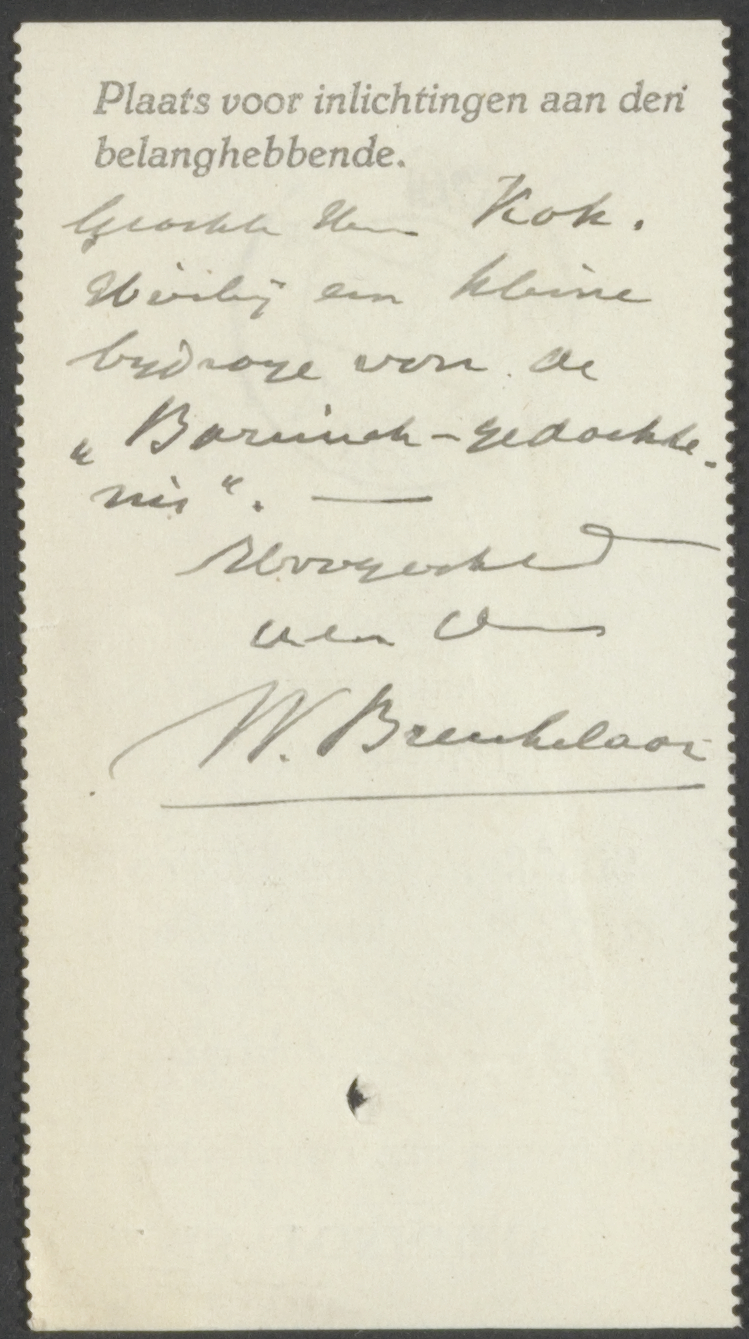 Plaats voor inlichtingen aan den
belanghebbende.
Geachte Heer Kok.
Hierbij een kleine
bijdrage voor de
„Barinck-gedachte-
nis“. —
Hoogachtend
W. Breukelaar